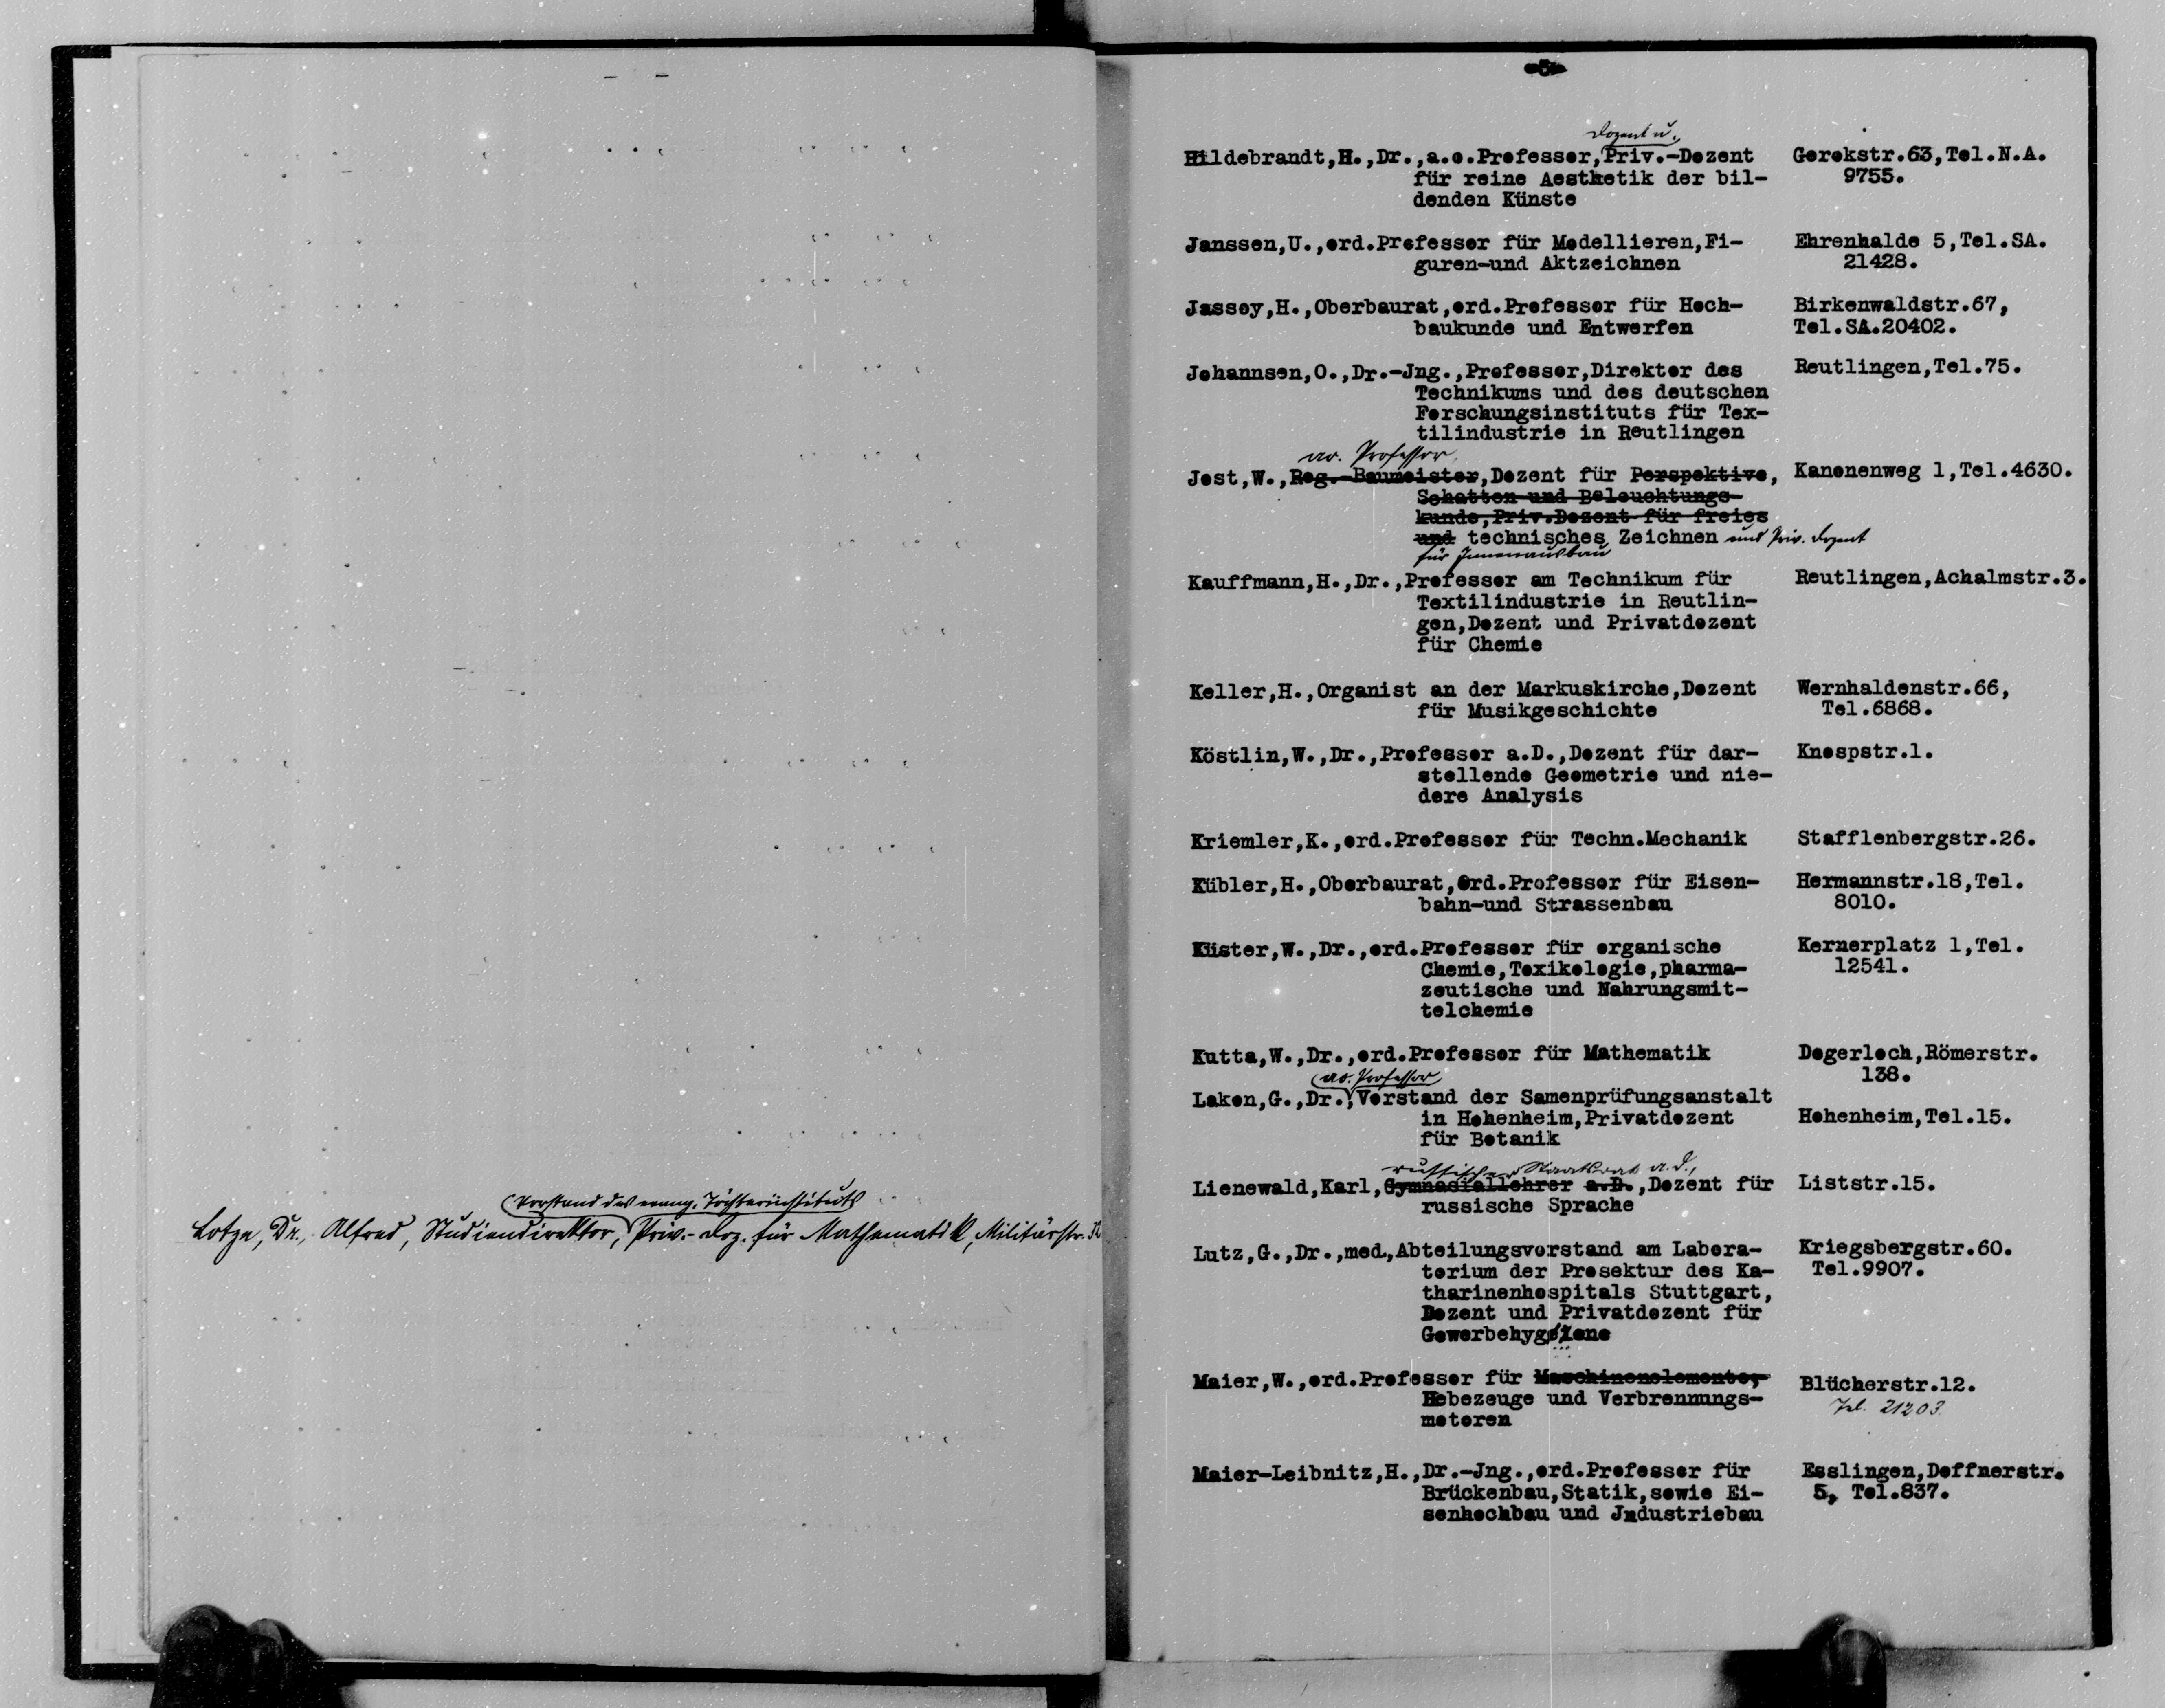 Vorstand des evang. Töchterinstituts
Lotze, Dr., Alfred, Studiendirektor, Priv.-Doz. für Mathematik, Militärstr.
-5-
Dozent u.
Hildebrandt,H.,Dr.,a.o.Professor,Priv.-Dozent Gerokstr.63,Tel.N.A.
für reine Aesthetik der bil- 9755.
denden Künste
Janssen,U.,ord.Professor für Modellieren,Fi- Ehrenhalde 5,Tel.SA.
guren-und Aktzeichnen 21428.
Jassoy,H.,Oberbaurat,ord.Professor für Hoch- Birkenwaldstr.67,
baukunde und Entwerfen Tel.SA.20402.
Johannsen,O.,Dr.-Jng.,Professor,Direktor des Reutlingen,Tel.75.
Technikums und des deutschen
Forschungsinstituts für Tex-
tilindustrie in Reutlingen
ao. Professor,
Jost,W.,Reg.-Baumeister,Dozent für Perspektive, Kanonenweg 1,Tel.4630.
Schatten und Beleuchtungs-
kunde,Priv.Dozent für freies
und technisches Zeichnen und Priv. Dozent
für Innenausbau
Kauffmann,H.,Dr.,Professor am Technikum für Reutlingen,Achalmstr.3.
Textilindustrie in Reutlin-
gen,Dozent und Privatdozent
für Chemie
Keller,H.,Organist an der Markuskirche,Dozent Wernhaldenstr.66,
für Musikgeschichte Tel.6868.
Köstlin,W.,Dr.,Professor a.D.,Dozent für dar- Knospstr.1.
stellende Geometrie und nie-
dere Analysis
Kriemler,K.,ord.Professor für Techn.Mechanik Stafflenbergstr.26.
Kübler,H.,Oberbaurat,ord.Professor für Eisen- Hermannstr.18,Tel.
bahn-und Strassenbau 8010.
Küster,W.,Dr.,ord.Professor für organische Kernerplatz 1,Tel.
Chemie,Toxikologie,pharma- 12541.
zeutische und Nahrungsmit-
telchemie
Kutta,W.,Dr.,ord.Professor für Mathematik Degerloch,Römerstr.
138.
ao. Professor
Lakon,G.,Dr.,Vorstand der Samenprüfungsanstalt
in Hohenheim,Privatdozent Hohenheim,Tel.15.
für Botanik
russischer Staatsrat a.D.,
Lienewald,Karl,Gymnasiallehrer a.D.,Dozent für Liststr.15.
russische Sprache
Lutz,G.,Dr.,med.,Abteilungsvorstand am Labora- Kriegsbergstr.60.
torium der Prosektur des Ka- Tel.9907.
tharinenhospitals Stuttgart,
Dozent und Privatdozent für
Gewerbehygiene
Maier,W.,ord.Professor für Maschinenelemente, Blücherstr.12.
Hebezeuge und Verbrennungs- Tel. 21203
motoren
Maier-Leibnitz,H.,Dr.-Jng.,ord.Professor für Esslingen,Deffnerstr.
Brückenbau,Statik,sowie Ei- 5, Tel.837.
senhochbau und Jndustriebau